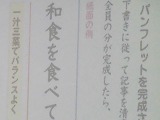 パンフレットを完成さ
下書きに従って記事を清
全員の分が完成したら、
紙面の例
和食を食べて
一汁三菜でバランスよく